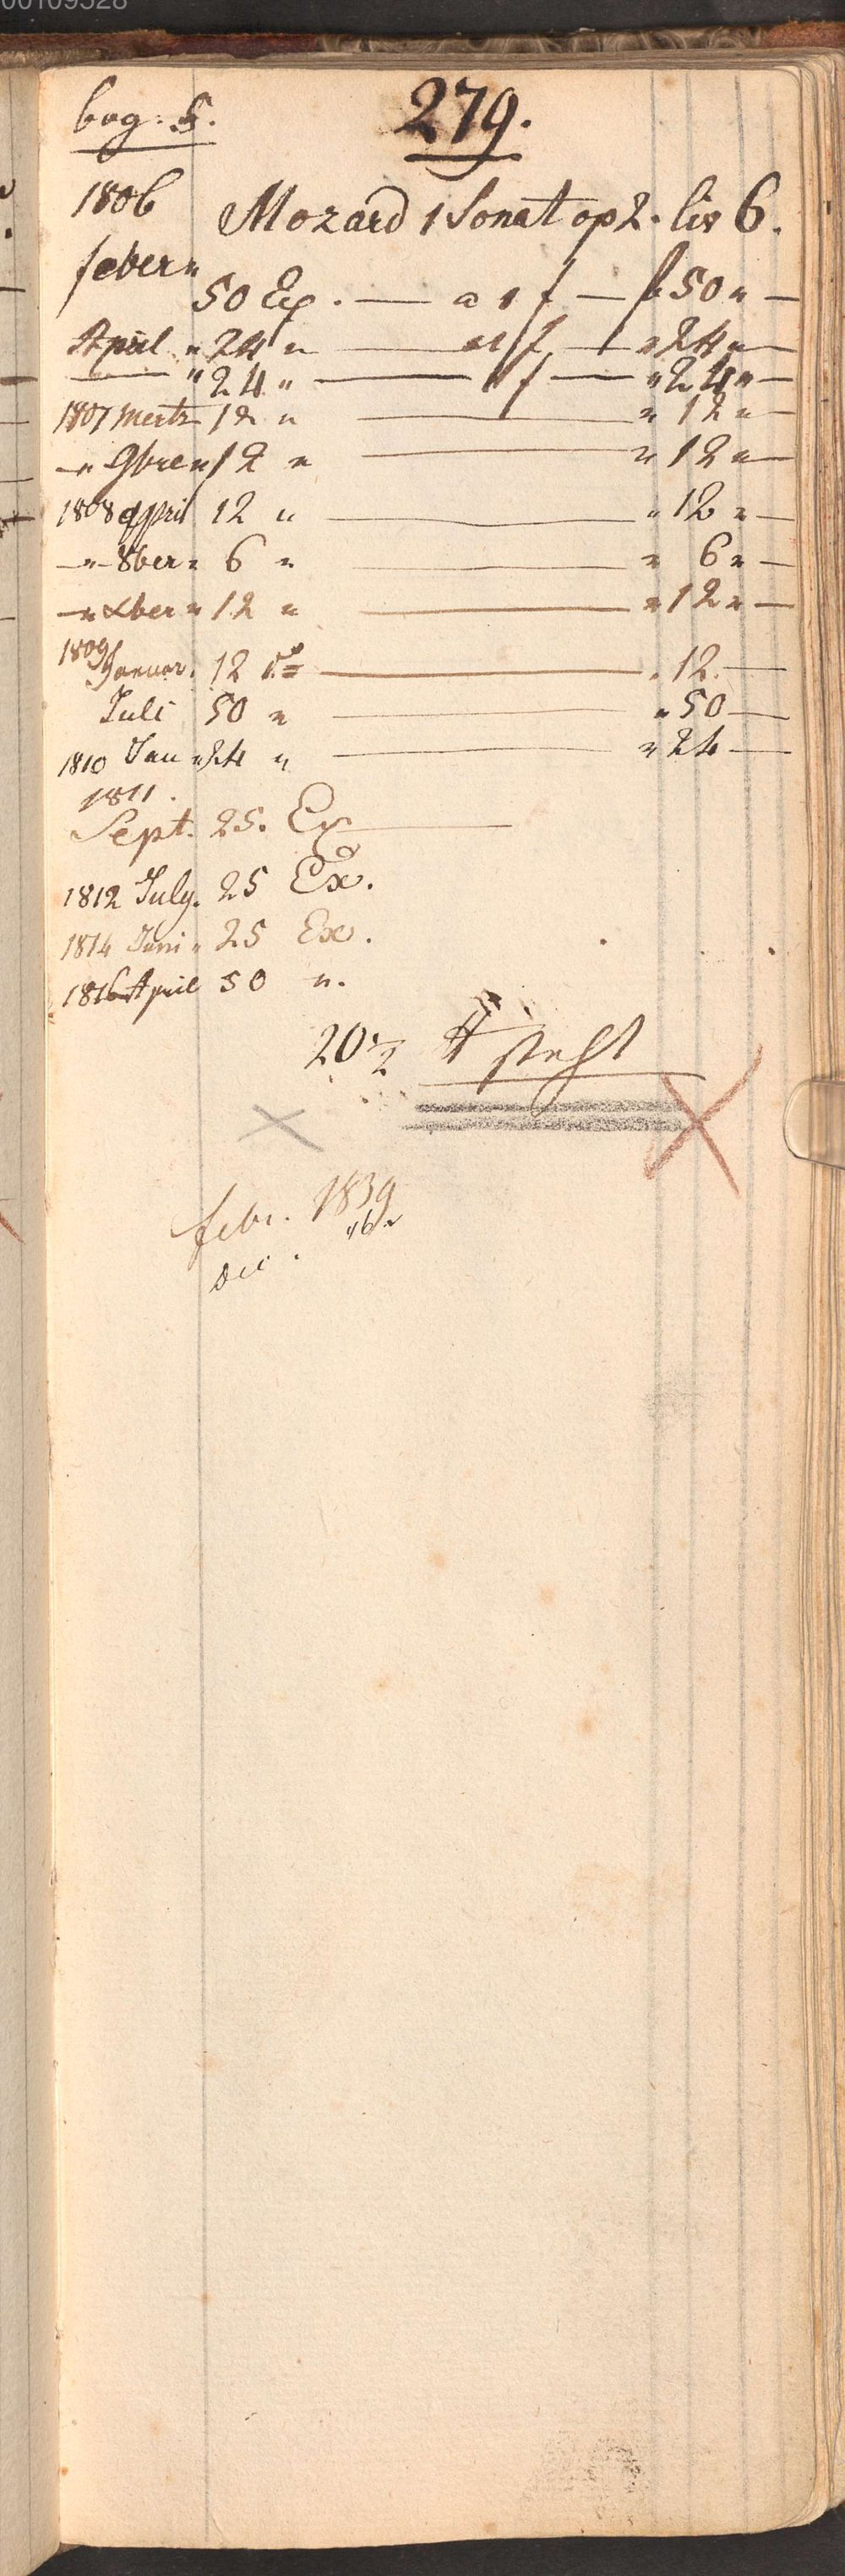 00109528
bog: 5.
279.
1806 Mozard 1 Sonat op 2. liv 6.
feber „ 50 Ex. — a 1 f — f 50 „ —
April „ 24 „ — a 1 f — „ 24 „ —
— „ 24 „ — „ f — „ 24 „ —
1807 Mertz 12 „ — „ 12 „ —
— „ 9bre „ 12 „ — „ 12 „ —
1808 April 12 „ — „ 12 „ —
— „ 8ber „ 6 „ — „ 6 „ —
— „ Xber „ 12 „ — „ 12 „ —
1809 Januar. 12 — „ 12. —
Juli 50 „ — „ 50 —
1810 Jan „ 24 „ — „ 24 —
1811.
Sept. 25. Ex —
1812 July. 25 Ex.
1814 Juni „ 25 Ex.
1816 April 50 „.
20 ½ ℔ steht
febr. 1839